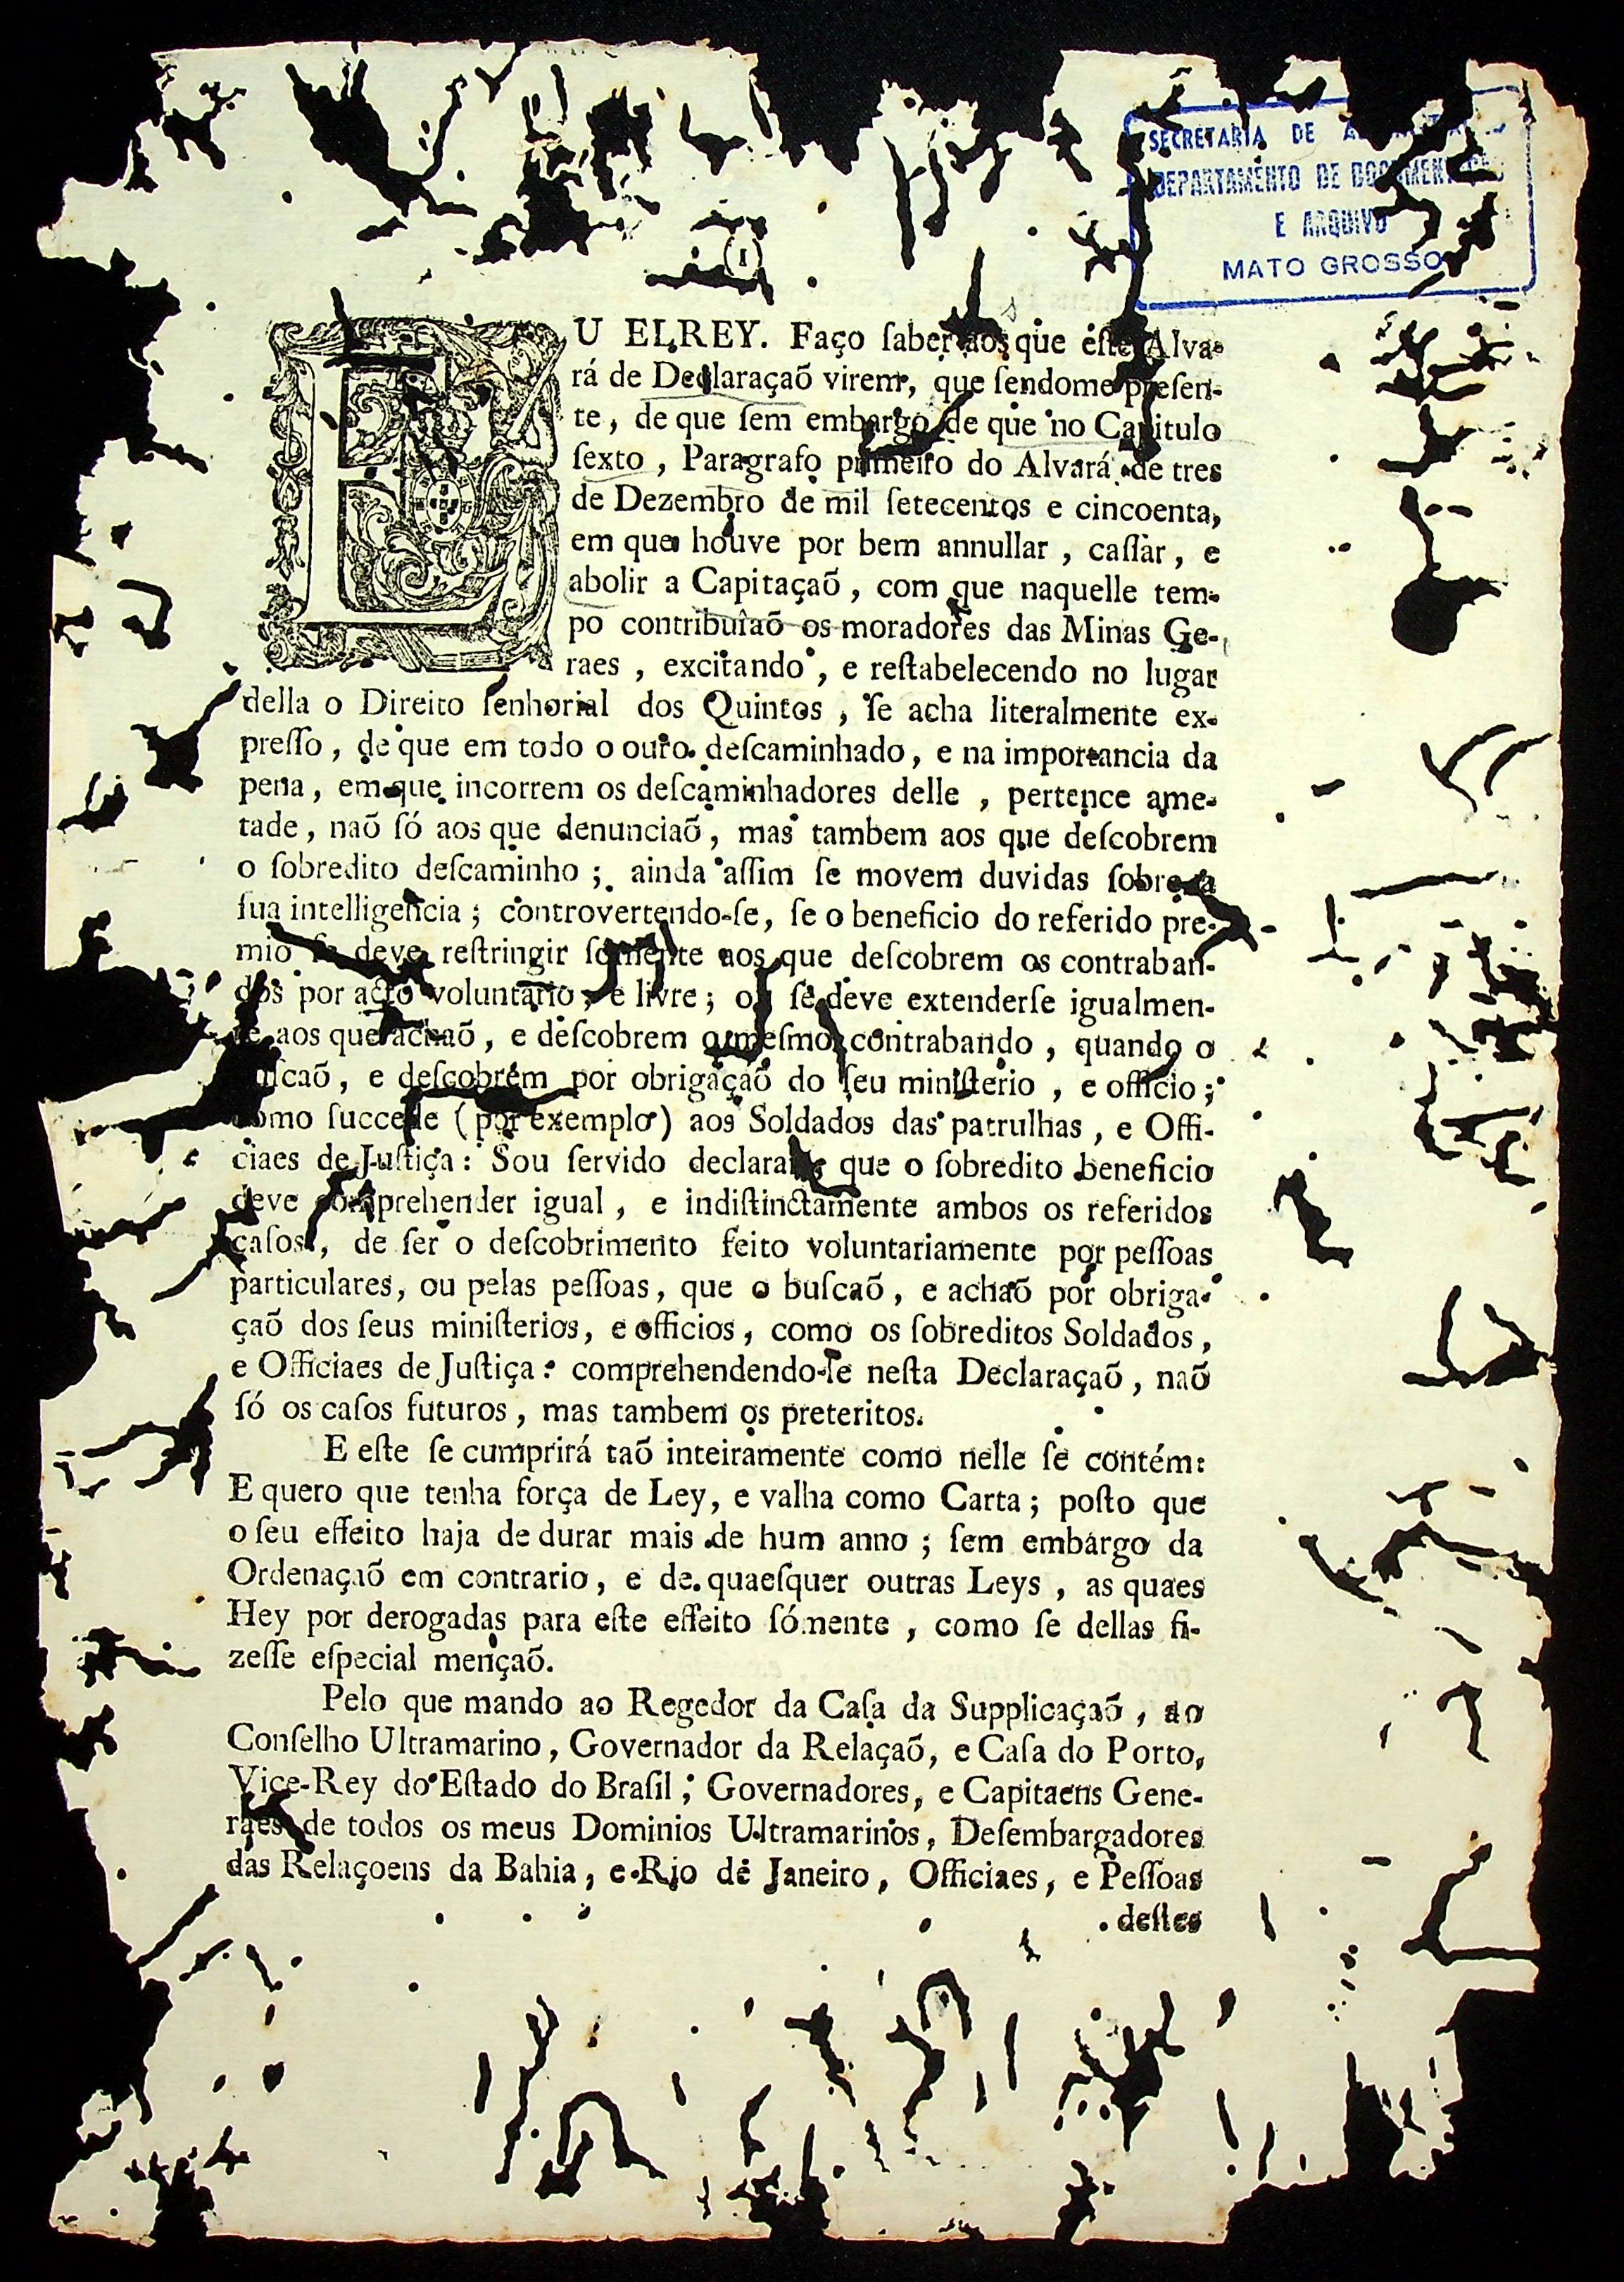 SECRETARIA DE
DEPARTAMENTO DE
E ARQUIVO
MATO GROSSO
(1)
EU ELREY. Faço ſaber aos que eſte Alva-
rá de Declaraçaõ virem, que ſendome preſen-
te, de que ſem embargo de que no Capitulo
ſexto, Paragrafo primeiro do Alvará de tres
de Dezembro de mil ſetecentos e cincoenta,
em que houve por bem annullar, caſſar, e
abolir a Capitaçaõ, com que naquelle tem-
po contribuîaõ os moradores das Minas Ge-
raes, excitando, e reſtabelecendo no lugar
della o Direito ſenhorial dos Quintos, ſe acha literalmente ex-
preſſo, de que em todo o ouro deſcaminhado, e na importancia da
pena, em que incorrem os deſcaminhadores delle, pertence ame-
tade, naõ ſó aos que denunciaõ, mas tambem aos que deſcobrem
o ſobredito deſcaminho; ainda aſſim ſe movem duvidas ſobre a
ſua intelligencia; controvertendo-ſe, ſe o beneficio do referido pre-
mio ſe deve reſtringir ſómente aos que deſcobrem os contraban-
dos por acto voluntario, e livre; ou ſe deve extenderſe igualmen-
te aos que achaõ, e deſcobrem o meſmo contrabando, quando o
buſcaõ, e deſcobrem por obrigaçaõ do ſeu miniſterio, e officio;
como ſuccede (por exemplo) aos Soldados das patrulhas, e Offi-
ciaes de Juſtiça: Sou ſervido declarar, que o ſobredito beneficio
deve comprehender igual, e indiſtinctamente ambos os referidos
caſos, de ſer o deſcobrimento feito voluntariamente por peſſoas
particulares, ou pelas peſſoas, que o buſcaõ, e achaõ por obriga-
çaõ dos ſeus miniſterios, e officios, como os ſobreditos Soldados,
e Officiaes de Juſtiça: comprehendendo-ſe neſta Declaraçaõ, naõ
ſó os caſos futuros, mas tambem os preteritos.
E eſte ſe cumprirá taõ inteiramente como nelle ſe contém:
E quero que tenha força de Ley, e valha como Carta; poſto que
o ſeu effeito haja de durar mais de hum anno; ſem embargo da
Ordenaçaõ em contrario, e de quaeſquer outras Leys, as quaes
Hey por derogadas para eſte effeito ſómente, como ſe dellas fi-
zeſſe eſpecial mençaõ.
Pelo que mando ao Regedor da Caſa da Supplicaçaõ, ao
Conſelho Ultramarino, Governador da Relaçaõ, e Caſa do Porto,
Vice-Rey do Eſtado do Braſil, Governadores, e Capitaens Gene-
raes de todos os meus Dominios Ultramarinos, Deſembargadores
das Relaçoens da Bahia, e Rio de Janeiro, Officiaes, e Peſſoas
deſtes